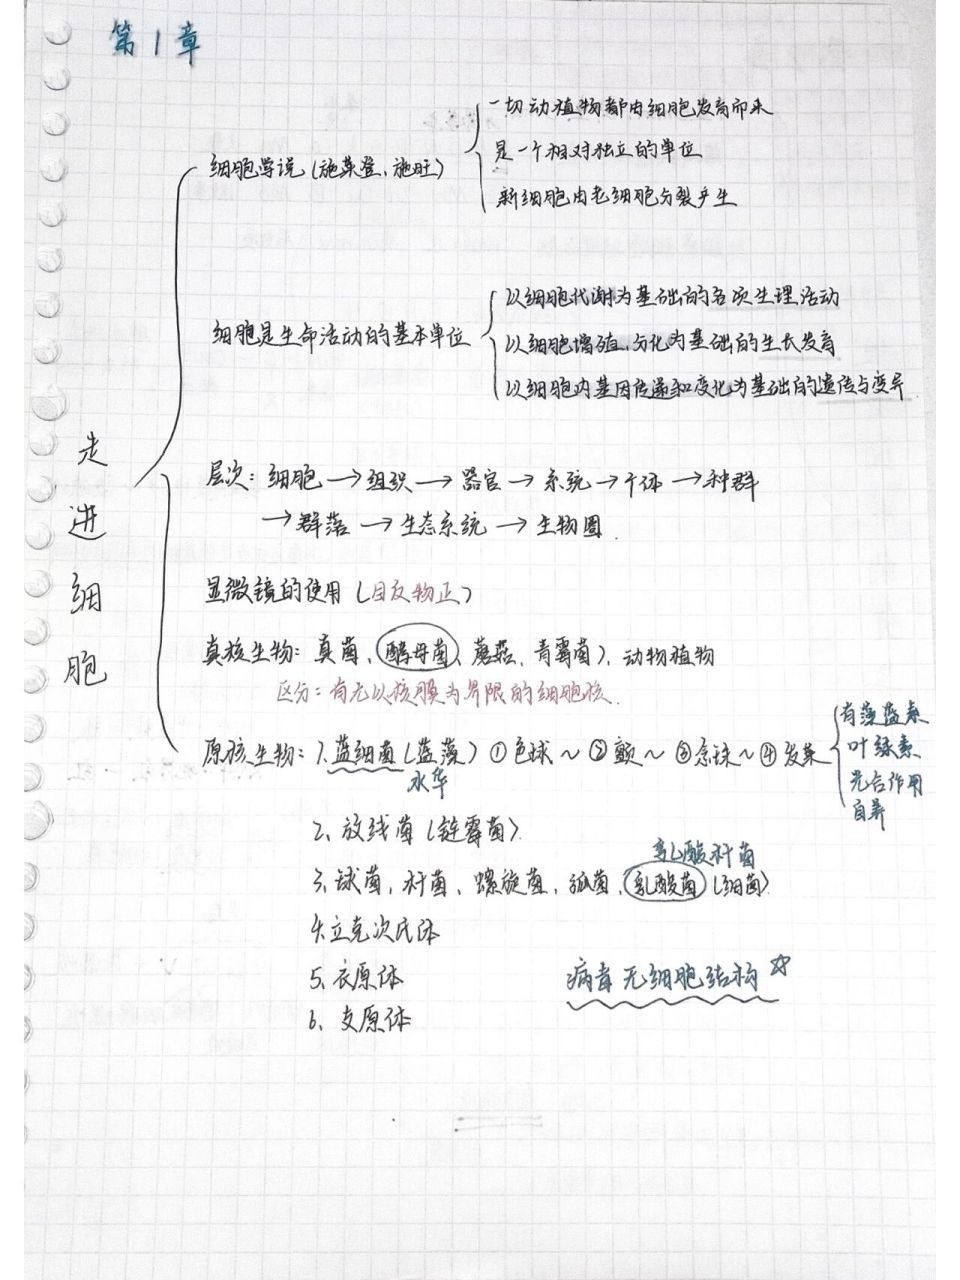 第1章
走进细胞
细胞学说(施莱登、施旺)
一切动植物都由细胞发育而来
是一个相对独立的单位
新细胞由老细胞分裂产生
细胞是生命活动的基本单位
以细胞代谢为基础的各项生理活动
以细胞增殖、分化为基础的生长发育
以细胞内基因传递和变化为基础的遗传与变异
层次:细胞→组织→器官→系统→个体→种群
→群落→生态系统→生物圈.
显微镜的使用(目反物正)
真核生物:真菌、(酵母菌、蘑菇、青霉菌)、动物植物
区分:有无以核膜为界限的细胞核.
原核生物:1.蓝细菌(蓝藻)①色球~②颤~③念珠~④发菜
水华
有藻蓝素
叶绿素
光合作用
自养
2、放线菌(链霉菌)
乳酸杆菌
3、球菌、杆菌、螺旋菌、弧菌、乳酸菌(细菌)
4.立克次氏体
5、衣原体
病毒无细胞结构☆
6、支原体